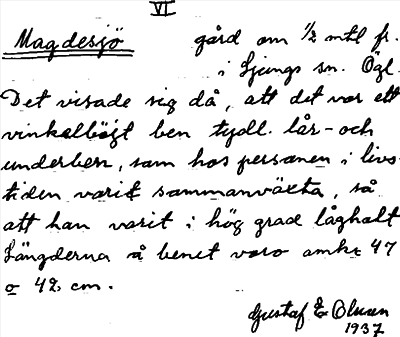 VI
Magdesjö gård om 1/2 mtl fr.
i Ljungs sn. Ögl.
Det visade sig då, att det var ett
vinkelböjt ben tydl. lår- och
underben, som hos personen i livs-
tiden varit sammanväxta, så
att han varit i hög grad låghalt
Längderna å benet voro omkr 47
o 42 cm.
Gustaf E Olsson
1937